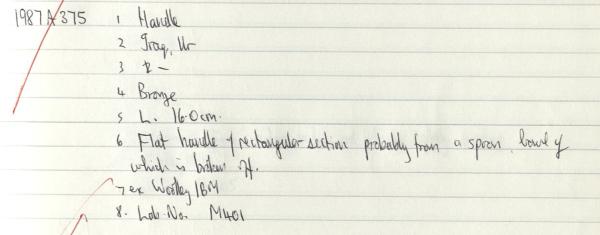 1987A375 1 Handle
2 Iraq, Ur
3 R —
4 Bronze
5 L. 16.0cm.
6 Flat handle of rectangular section probably from a spoon, bowl of
which is broken off.
7 ex Woolley / BM
8. Lab. No. M401